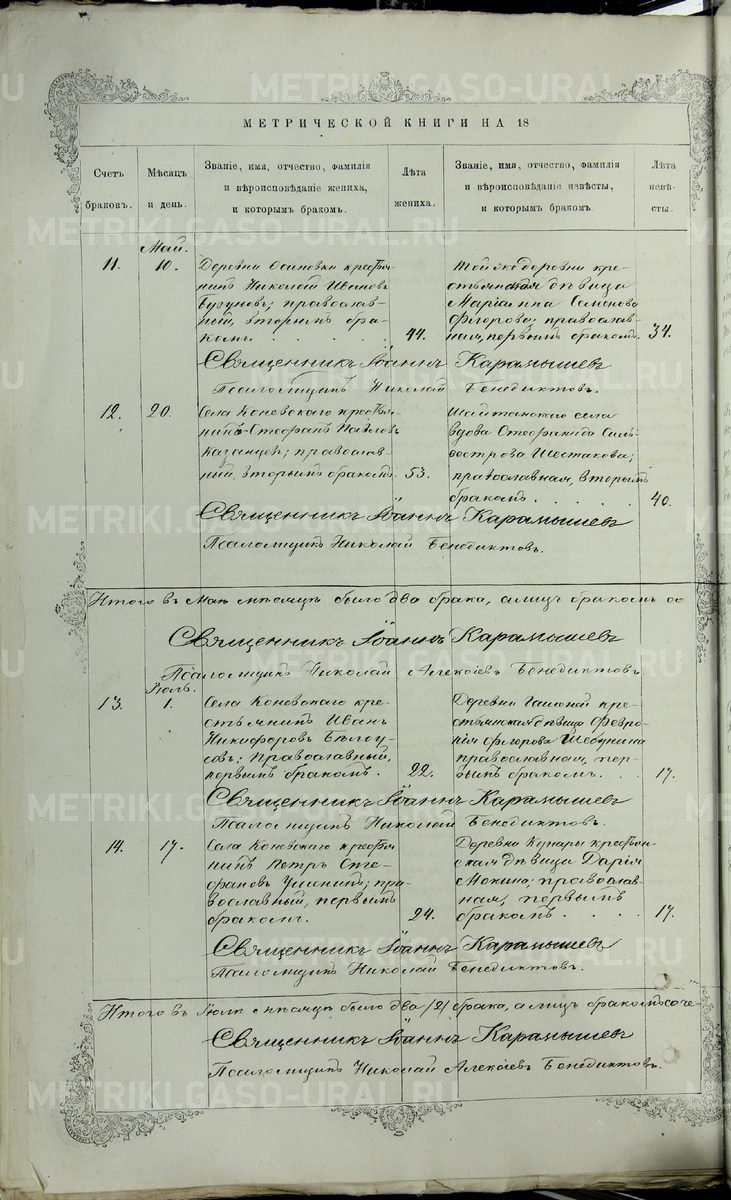 МЕТРИЧЕСКОЙ КНИГИ НА 18
Счетъ браковъ.
Мѣсяцъ и день.
Званіе, имя, отчество, фамилія и вѣроисповѣданіе жениха, и которымъ бракомъ.
Лѣта жениха.
Званіе, имя, отчество, фамилія и вѣроисповѣданіе невѣсты, и которымъ бракомъ.
Лѣта невѣсты.
Май.
11.
10.
Деревни Осиновки крестья-
нинъ Николай Ивановъ
православ-
ный, вторымъ бра-
комъ.
44.
Той же деревни кре-
стьянская дѣвица
Маріанна Семенова
православ-
ная, первымъ бракомъ.
34.
Священникъ Іоаннъ Карамышевъ
Псаломщикъ Николай Бенедиктовъ.
12.
20.
Села Коневскаго крестья-
нинъ Стефанъ Павловъ
Казанцевъ; православ-
ный, вторымъ бракомъ.
53.
Шайтанскаго села
вдова Стефанида Силь-
вестрова Шестакова;
православная, вторымъ
бракомъ.
40.
Священникъ Іоаннъ Карамышевъ
Псаломщикъ Николай Бенедиктовъ.
Итого въ Маѣ мѣсяцѣ было два брака, а лицъ бракомъ со
Священникъ Іоаннъ Карамышевъ
Псаломщикъ Николай Алексіевъ Бенедиктовъ.
13.
1.
Села Коневскаго кре-
стьянинъ Иванъ
Никифоровъ Бѣлоу-
совъ; православный,
первымъ бракомъ.
22.
Деревни кре-
стьянская дѣвица Февро-
нія
православная, пер-
вымъ бракомъ.
17.
Священникъ Іоаннъ Карамышевъ
Псаломщикъ Николай Бенедиктовъ.
14.
17.
Села Коневскаго крестья-
нинъ Петръ Сте-
фановъ пра-
вославный, первымъ
бракомъ.
24.
Деревни Кунары крестьян-
ская дѣвица Дарія
Мокина; православ-
ная, первымъ
бракомъ.
17.
Священникъ Іоаннъ Карамышевъ
Псаломщикъ Николай Бенедиктовъ.
Итого въ Іюлѣ мѣсяцѣ было два /2/ брака, а лицъ бракомъ соче-
Священникъ Іоаннъ Карамышевъ
Псаломщикъ Николай Алексіевъ Бенедиктовъ.
METRIKI.GASO-URAL.RU